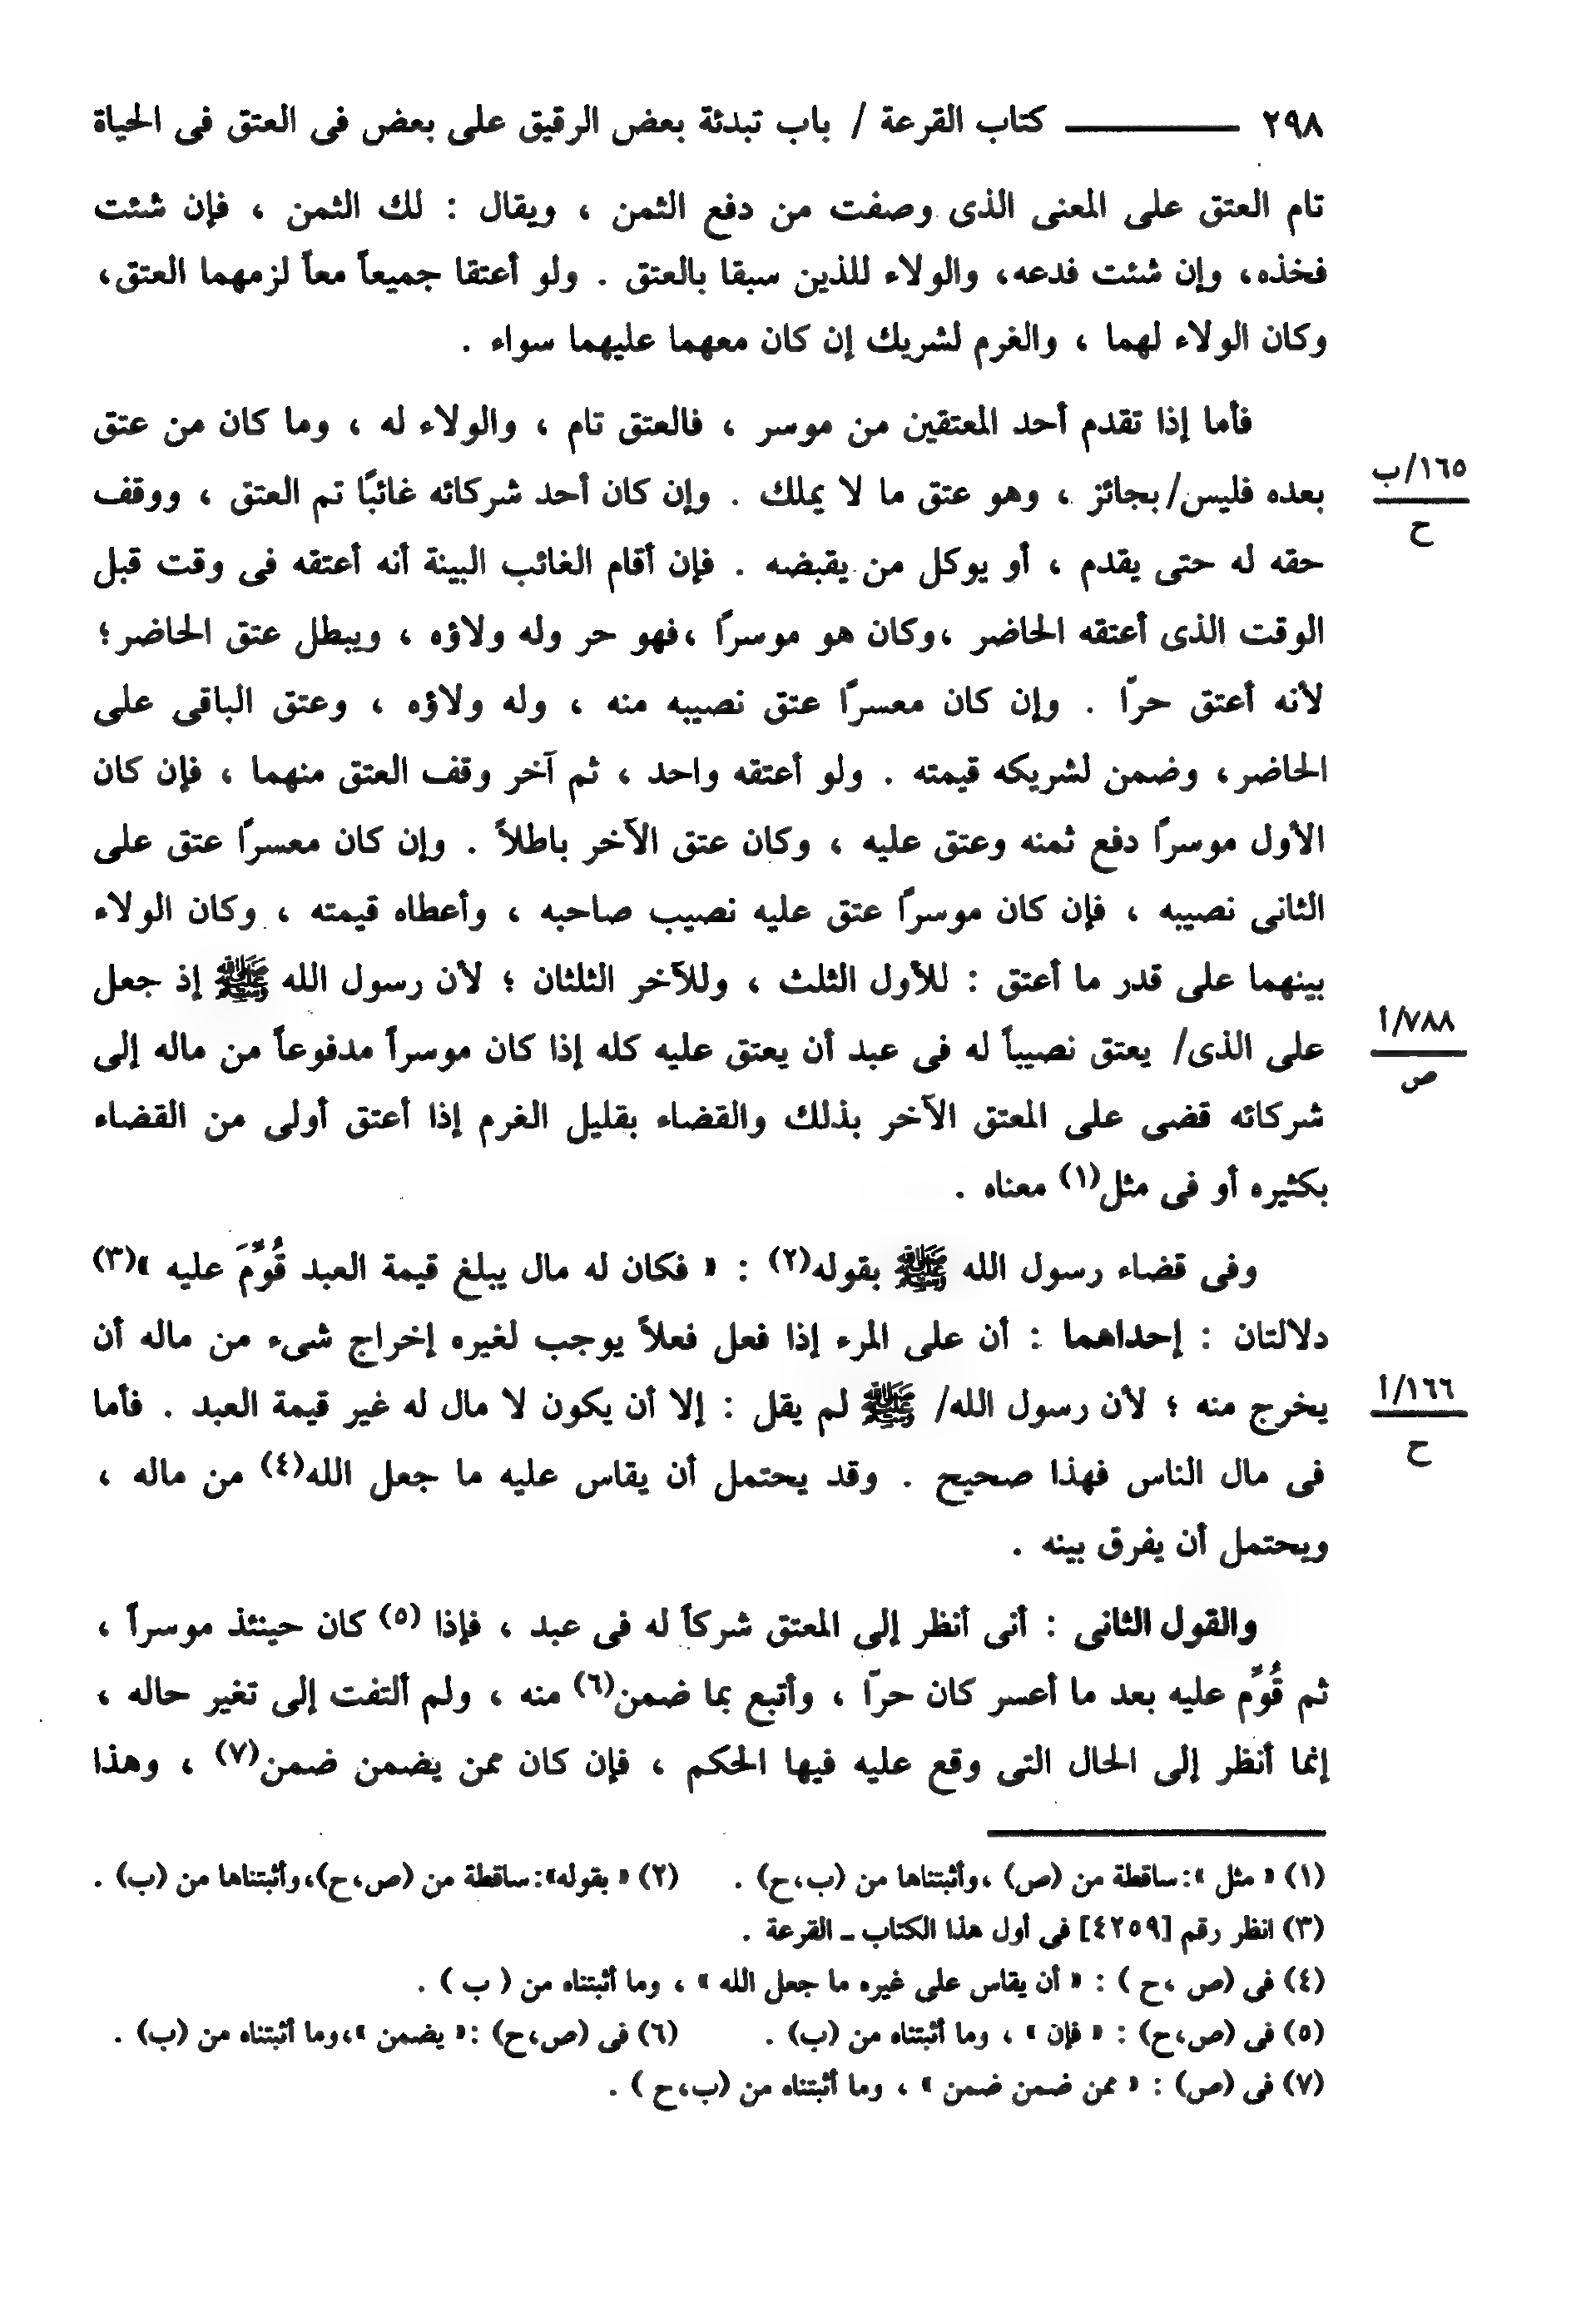 ٢٩٨ ــــــــ كتاب القرعة / باب تبدئة بعض الرقيق على بعض فى العتق فى الحياة
تام العتق على المعنى الذى وصفت من دفع الثمن ، ويقال : لك الثمن ، فإن شئت
فخذه، وإن شئت فدعه، والولاء للذين سبقا بالعتق . ولو أعتقا جميعاً معاً لزمهما العتق،
وكان الولاء لهما ، والغرم لشريك إن كان معهما عليهما سواء .
فأما إذا تقدم أحد المعتقين من موسر ، فالعتق تام ، والولاء له ، وما كان من عتق
١٦٥/ب
ح
بعده فليس/ بجائز ، وهو عتق ما لا يملك . وإن كان أحد شركائه غائبًا تم العتق ، ووقف
حقه له حتى يقدم ، أو يوكل من يقبضه . فإن أقام الغائب البينة أنه أعتقه فى وقت قبل
الوقت الذى أعتقه الحاضر ،وكان هو موسرًا ،فهو حر وله ولاؤه ، ويبطل عتق الحاضر؛
لأنه أعتق حرّا . وإن كان معسرًا عتق نصيبه منه ، وله ولاؤه ، وعتق الباقى على
الحاضر، وضمن لشريكه قيمته . ولو أعتقه واحد ، ثم آخر وقف العتق منهما ، فإن كان
الأول موسرًا دفع ثمنه وعتق عليه ، وكان عتق الآخر باطلاً . وإن كان معسرًا عتق على
الثانى نصيبه ، فإن كان موسرًا عتق عليه نصيب صاحبه ، وأعطاه قيمته ، وكان الولاء
بينهما على قدر ما أعتق : للأول الثلث ، وللآخر الثلثان ؛ لأن رسول الله ﷺ إذ جعل
٧٨٨/أ
ص
على الذى/ يعتق نصيباً له فى عبد أن يعتق عليه كله إذا كان موسراً مدفوعاً من ماله إلى
شركائه قضى على المعتق الآخر بذلك والقضاء بقليل الغرم إذا أعتق أولى من القضاء
بكثيره أو فى مثل(١) معناه .
وفى قضاء رسول الله ﷺ بقوله(٢) : « فكان له مال يبلغ قيمة العبد قُوِّمَ عليه »(٣)
دلالتان : إحداهما : أن على المرء إذا فعل فعلاً يوجب لغيره إخراج شىء من ماله أن
١٦٦/أ
ح
يخرج منه ؛ لأن رسول الله/ ﷺ لم يقل : إلا أن يكون لا مال له غير قيمة العبد . فأما
فى مال الناس فهذا صحيح . وقد يحتمل أن يقاس عليه ما جعل الله(٤) من ماله ،
ويحتمل أن يفرق بينه .
والقول الثانى : أنى أنظر إلى المعتق شركاً له فى عبد ، فإذا (٥) كان حينئذ موسراً ،
ثم قُوِّم عليه بعد ما أعسر كان حرّا ، وأتبع بما ضمن(٦) منه ، ولم ألتفت إلى تغير حاله ،
إنما أنظر إلى الحال التى وقع عليه فيها الحكم ، فإن كان ممن يضمن ضمن(٧) ، وهذا
(١) « مثل »: ساقطة من (ص) ،وأثبتناها من (ب،ح) . (٢) « بقوله»: ساقطة من (ص،ح)،وأثبتناها من (ب) .
(٣) انظر رقم [٤٢٥٩] فى أول هذا الكتاب ـ القرعة .
(٤) فى (ص ،ح ) : « أن يقاس على غيره ما جعل الله » ، وما أثبتناه من ( ب ) .
(٥) فى (ص،ح) : « فإن » ، وما أثبتناه من (ب) . (٦) فى (ص،ح) :« يضمن »،وما أثبتناه من (ب) .
(٧) فى (ص) : « ممن ضمن ضمن » ، وما أثبتناه من (ب،ح ) .